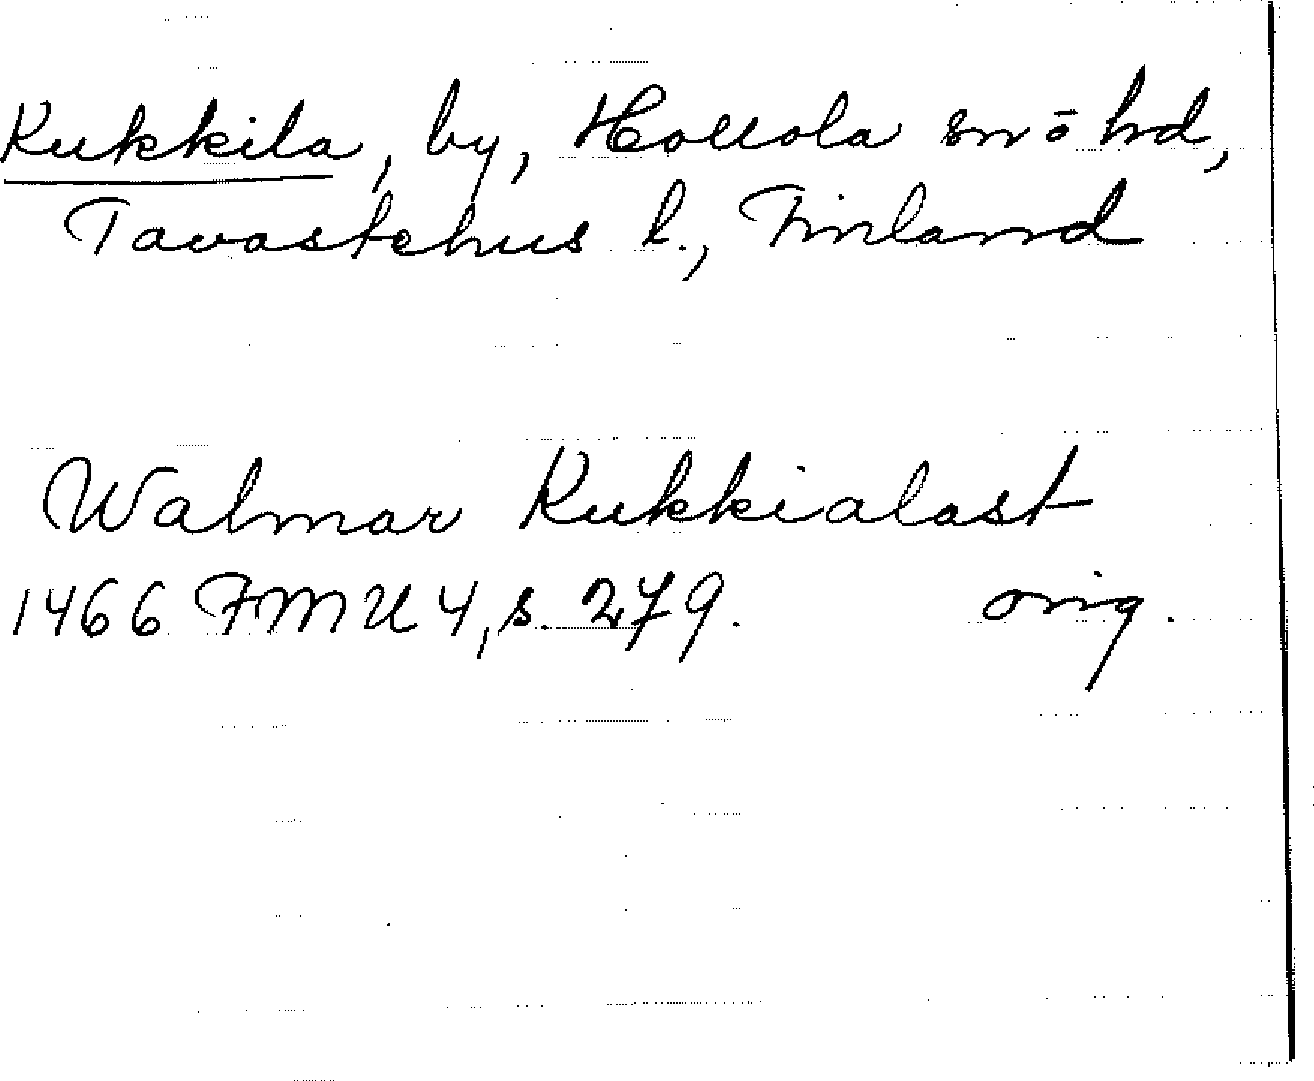 Kukkila, by, Hollola sn o hd,
Tavastehus l., Finland
Walmar Kukkialast
1466 FMU 4, s. 279. orig.